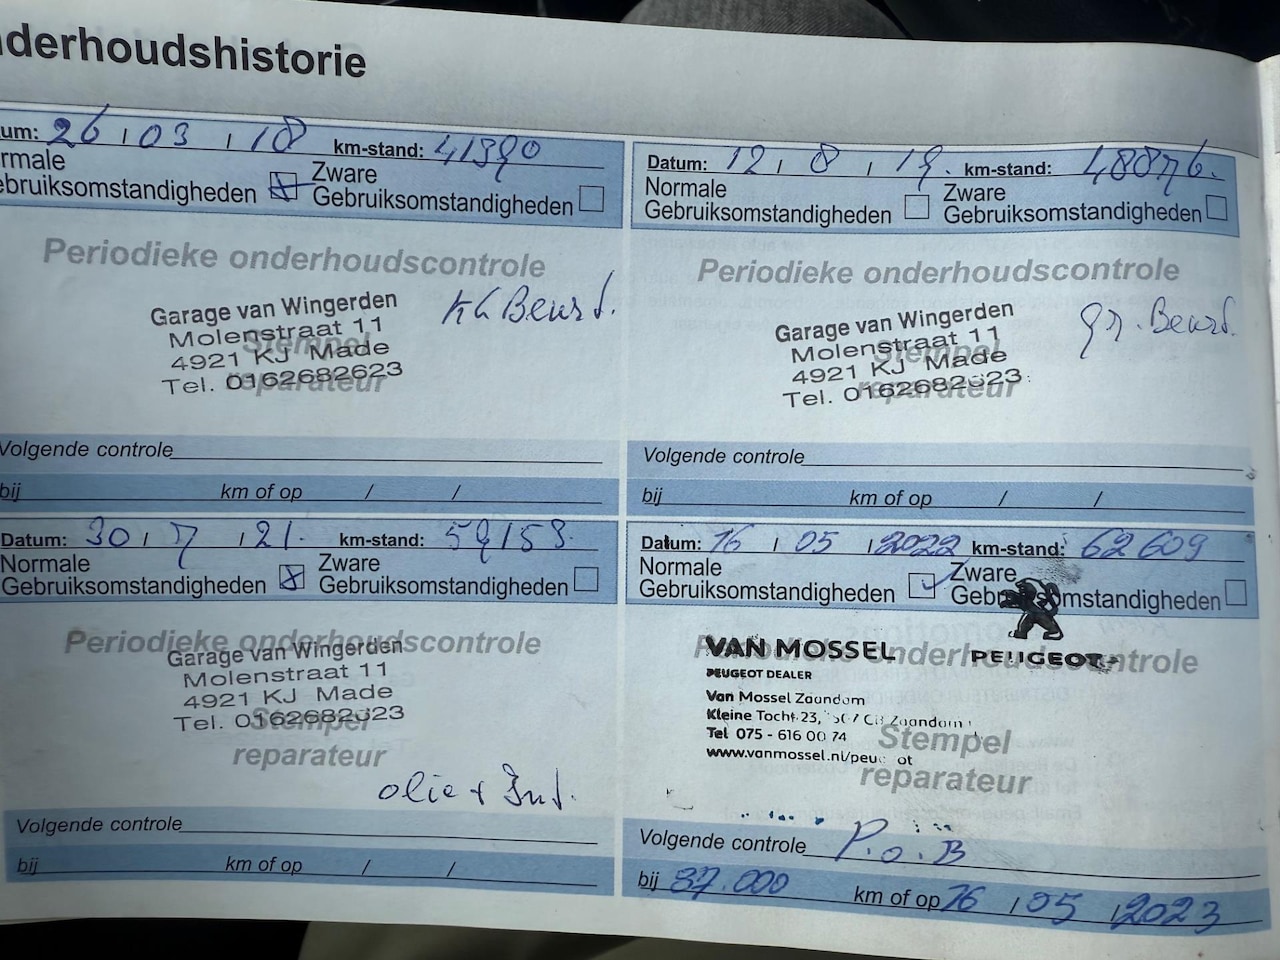 nderhoudshistorie
um: 26 / 03 / 18 km-stand: 41390
rmale
ebruiksomstandigheden
Zware
Gebruiksomstandigheden
Periodieke onderhoudscontrole
Garage van Wingerden
Molenstraat 11
4921 KJ Made
Tel. 0162682623
Stempel
reparateur
Kl Beurt.
Volgende controle
bij km of op / /
Datum: 12 / 8 / 19. km-stand: 48876.
Normale
Gebruiksomstandigheden
Zware
Gebruiksomstandigheden
Periodieke onderhoudscontrole
Garage van Wingerden
Molenstraat 11
4921 KJ Made
Tel. 0162682623
Stempel
reparateur
gr. Beurt.
Volgende controle
bij km of op / /
Datum: 30 / 7 / 21. km-stand: 59153.
Normale
Gebruiksomstandigheden
Zware
Gebruiksomstandigheden
Periodieke onderhoudscontrole
Garage van Wingerden
Molenstraat 11
4921 KJ Made
Tel. 0162682623
Stempel
reparateur
olie +
Volgende controle
bij km of op / /
Datum: 16 / 05 / 2022 km-stand: 62609
Normale
Gebruiksomstandigheden
Zware
Gebruiksomstandigheden
Periodieke onderhoudscontrole
VAN MOSSEL
PEUGEOT
PEUGEOT DEALER
Van Mossel Zaandam
Kleine Tocht 23, Zaandam
Tel 075 - 616 00 74
www.vanmossel.nl/peugeot
Stempel
reparateur
Volgende controle P.o.B
bij 37.000 km of op 16 / 05 / 2023